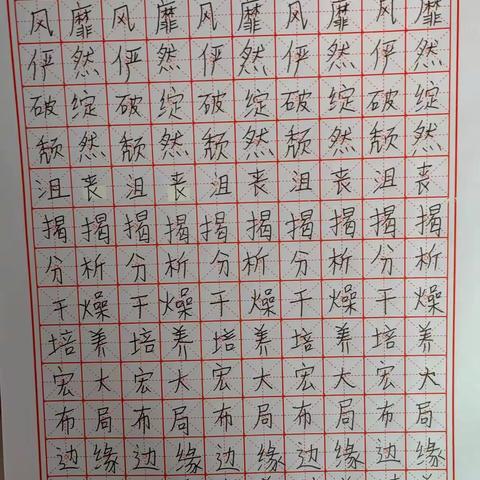 风靡风靡风靡风靡风靡
俨然俨然俨然俨然俨然
破绽破绽破绽破绽破绽
颓然颓然颓然颓然颓然
沮丧沮丧沮丧沮丧沮丧
揭揭揭揭揭揭揭揭揭揭
分析分析分析分析分析
干燥干燥干燥干燥干燥
培养培养培养培养培养
宏大宏大宏大宏大宏大
布局布局布局布局布局
边缘边缘边缘边缘边缘